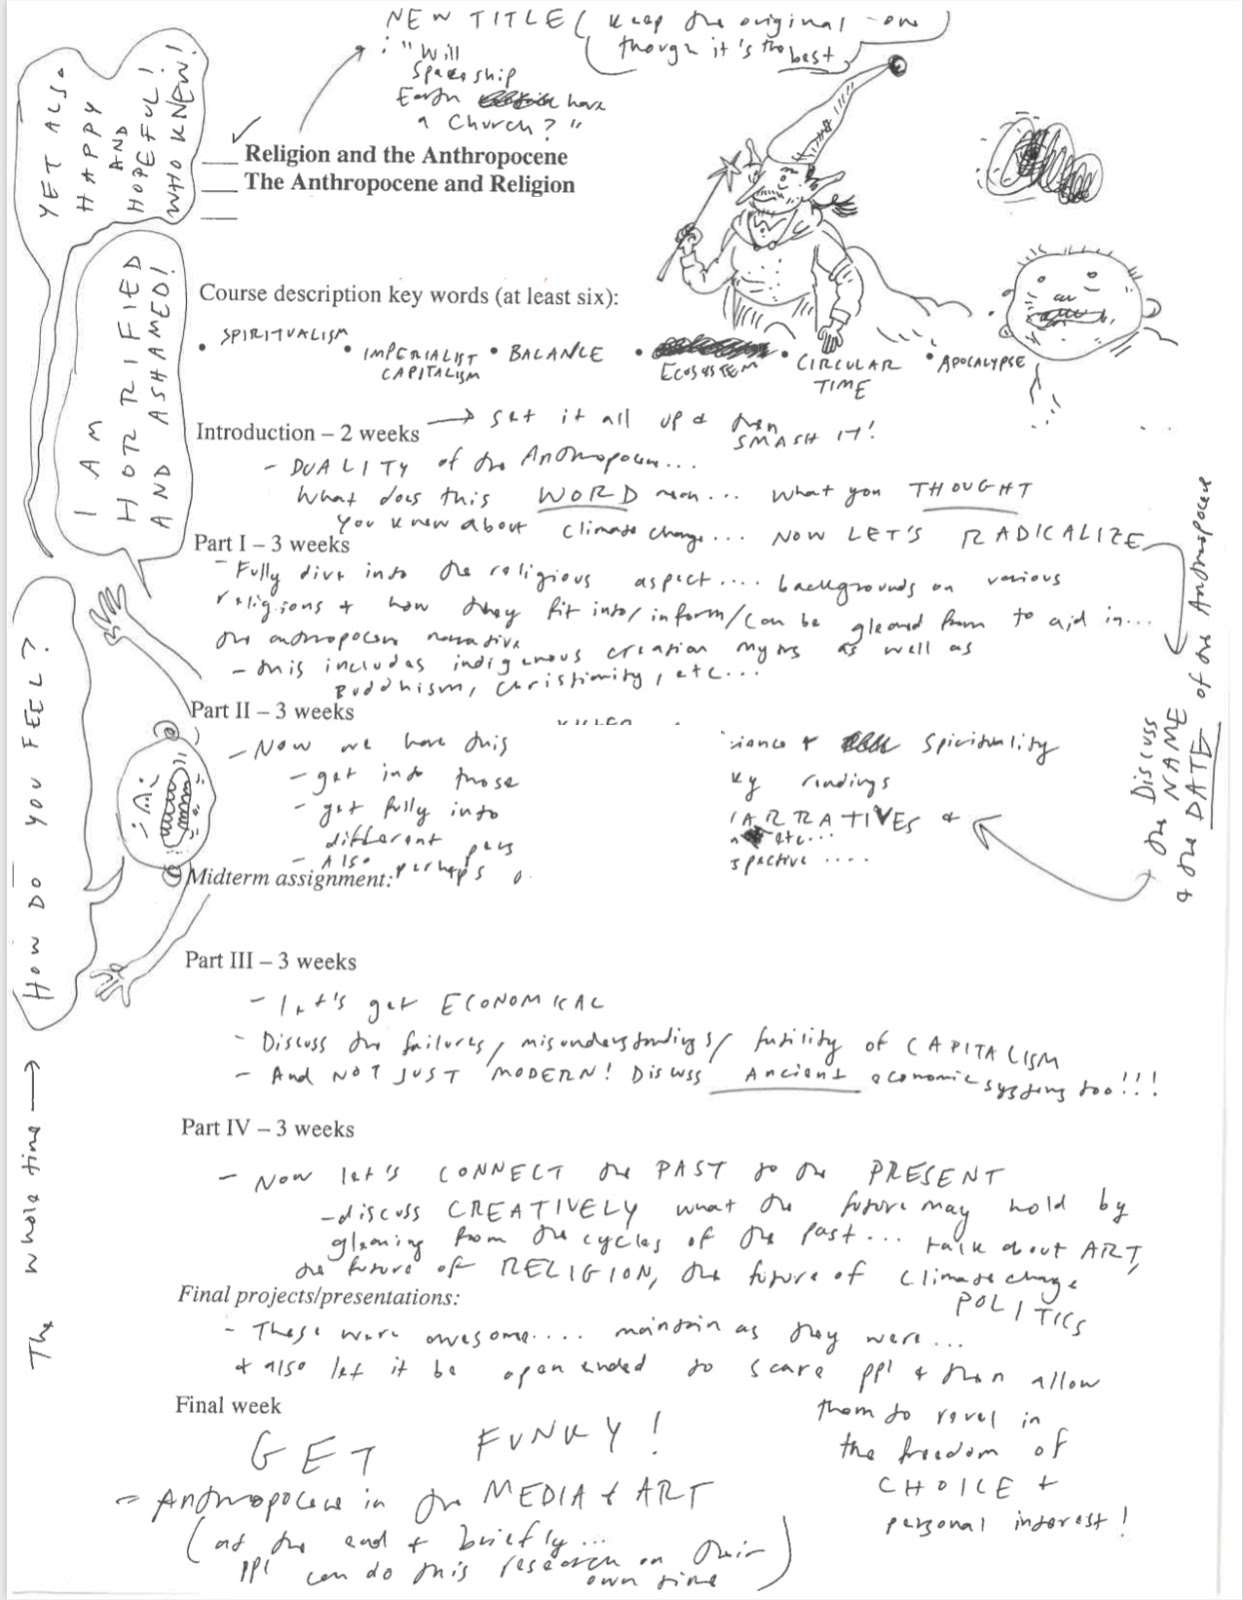 NEW TITLE ( keep the original one
though it's the best )
: "Will
Spaceship
Earth have
a Church?"
✓ Religion and the Anthropocene
___ The Anthropocene and Religion
___
YET ALSO
HAPPY
AND
HOPEFUL!
WHO KNEW!
I AM
HORRIFIED
AND ASHAMED!
Course description key words (at least six):
• SPIRITUALISM
• IMPERIALIST
CAPITALISM
• BALANCE
• ECOSYSTEM
• CIRCULAR
TIME
• APOCALYPSE
Introduction – 2 weeks → set it all up & then
SMASH IT!
- DUALITY of the Anthropocene...
What does this WORD mean... what you THOUGHT
you knew about climate change... NOW LET'S RADICALIZE
Part I – 3 weeks
- Fully dive into the religious aspect.... backgrounds on various
religions & how they fit into/inform/can be gleaned from to aid in...
the anthropocene narrative
- this includes indigenous creation myths as well as
Buddhism, Christianity, etc...
Part II – 3 weeks
- Now we have this
- get into those
- get fully into
different
- Also perhaps
iance & Spirituality
ky readings
ARRATIVES &
etc...
spective ....
Discuss
the NAME
& the DATE of the Anthropocene
Midterm assignment:
HOW DO YOU FEEL?
The whole time →
Part III – 3 weeks
- Let's get ECONOMICAL
- Discuss the failures/misunderstandings/futility of CAPITALISM
- And NOT JUST MODERN! Discuss Ancient economic systems too!!!
Part IV – 3 weeks
- Now let's CONNECT the PAST to the PRESENT
- discuss CREATIVELY what the future may hold by
gleaning from the cycles of the past... talk about ART,
the future of RELIGION, the future of climate change
POLITICS
Final projects/presentations:
- These were awesome.... maintain as they were...
& also let it be open ended to scare ppl & then allow
them to revel in
the freedom of
CHOICE &
personal interest!
Final week
GET FUNKY!
- Anthropocene in the MEDIA & ART
(at the end & briefly...
ppl can do this research on their
own time)